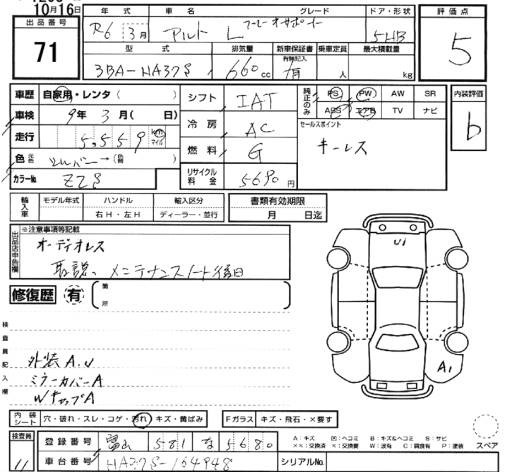 10月16日
出品番号
71
年式 車名 グレード ドア・形状
R6 3月 アルト L アップグレード 5HB
評価点
5
型式 排気量 新車保証書 乗車定員 最大積載量
有無記入
3BA-HA37S 660cc 有 人 kg
車歴 自家用・レンタ( )
車検 9年3月( 日)
走行 5,559 km マイル
色 元色 シルバー→ 色替( )
カラーNo. Z2S
シフト IAT
冷房 AC
燃料 G
リサイクル料金 5690
純正のみ PS PW AW SR
ABS エアB TV ナビ
セールスポイント
キーレス
内装評価
b
輸入車 モデル年式 ハンドル 輸入区分
右H・左H ディーラー・並行
書類有効期限
月 日迄
出品店申告欄
※注意事項等記載
オーディオレス
取説、メンテナンスノート後日
修復歴 有 箇所
検査員記入欄
外装A,U
ミラーカバーA
WチップA
U1
A1
内装シート 穴・破れ・スレ・コゲ・汚れ・キズ・黄ばみ
Fガラス キズ・飛石・×要す
検査員
11
登録番号 富山 581 な 5680
車台番号 HA37S-154948
シリアルNo.
A:キズ U:ヘコミ B:キズ&ヘコミ S:サビ
××:交換済 ×:交換要 W:波有 C:腐食有 P:塗装
スペア